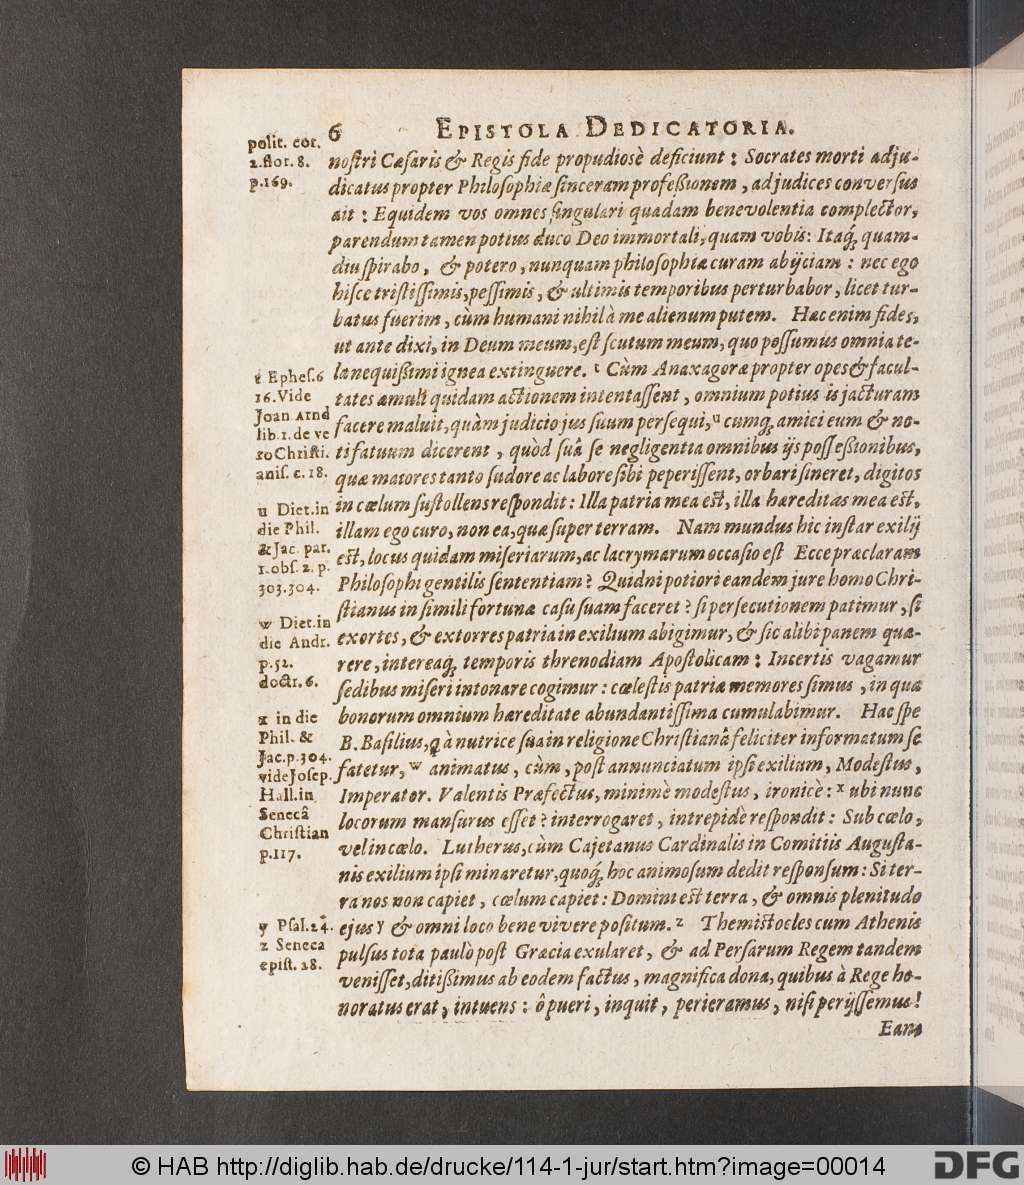 6 EPISTOLA DEDICATORIA.
polit. cor.
2. flor. 8.
p. 169.
nostri Cæsaris & Regis fide propudiosè deficiunt : Socrates morti adju-
dicatus propter Philosophiæ sinceram professionem, ad judices conversus
ait : Equidem vos omnes singulari quadam benevolentia complector,
parendum tamen potius duco Deo immortali, quam vobis: Itaq́; quam-
diu spirabo, & potero, nunquam philosophiæ curam abijciam : nec ego
hisce tristissimis, pessimis, & ultimis temporibus perturbabor, licet tur-
batus fuerim, cùm humani nihil à me alienum putem. Hæc enim fides,
ut ante dixi, in Deum meum, est scutum meum, quo possumus omnia te-
la nequissimi ignea extinguere. t Cùm Anaxagoræ propter opes & facul-
tates æmuli quidam actionem intentassent, omnium potius is jacturam
facere maluit, quàm judicio jus suum persequi, u cumq; amici eum & no-
ti fatuum dicerent, quòd suâ se negligentia omnibus ijs possessionibus,
quæ maiores tanto sudore ac labore sibi peperissent, orbari sineret, digitos
in cœlum sustollens respondit : Illa patria mea est, illa hæreditas mea est,
illam ego curo, non ea, quæ super terram. Nam mundus hic instar exilij
est, locus quidam miseriarum, ac lacrymarum occasio est Ecce præclaram
Philosophi gentilis sententiam? Quidni potiori eandem jure homo Chri-
stianus in simili fortunæ casu suam faceret? si persecutionem patimur, si
exortes, & extorres patria in exilium abigimur, & sic alibi panem quæ-
rere, intereaq́; temporis threnodiam Apostolicam : Incertis vagamur
sedibus miseri intonare cogimur : cœlestis patriæ memores simus, in qua
bonorum omnium hæreditate abundantissima cumulabimur. Hac spe
B. Basilius, q̨ à nutrice sua in religione Christianâ feliciter informatum se
fatetur, w animatus, cùm, post annunciatum ipsi exilium, Modestus,
Imperator. Valentis Præfectus, minimè modestus, ironicè : x ubi nunc
locorum mansurus esset? interrogaret, intrepidè respondit : Sub cœlo,
vel in cœlo. Lutherus, cùm Cajetanus Cardinalis in Comitiis Augusta-
nis exilium ipsi minaretur, quoq́; hoc animosum dedit responsum : Si ter-
ra nos non capiet, cœlum capiet : Domini est terra, & omnis plenitudo
ejus y & omni loco bene vivere positum. z Themistocles cum Athenis
pulsus tota paulò post Græcia exularet, & ad Persarum Regem tandem
venisset, ditissimus ab eodem factus, magnifica dona, quibus à Rege ho-
noratus erat, intuens : ô pueri, inquit, perieramus, nisi perijssemus!
Eam
t Ephes. 6
16. Vide
Joan Arnd
lib. 1. de ve
ro Christi.
anis. c. 18.
u Diet. in
die Phil.
& Jac. par.
1. obs. 2. p.
303. 304.
w Diet. in
die Andr.
p. 52.
doctr. 6.
x in die
Phil. &
Jac. p. 304.
vide Josep.
Hall. in
Senecâ
Christian
p. 117.
y Psal. 24.
z Seneca
epist. 28.
© HAB http://diglib.hab.de/drucke/114-1-jur/start.htm?image=00014
DFG